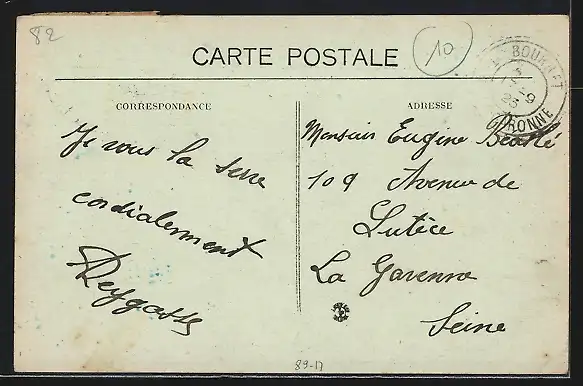 82
CARTE POSTALE
10
BOURRET
9
23
RONNE
CORRESPONDANCE
ADRESSE
Je vous la serre
cordialement
Reygasse
Monsieur Eugène
109 Avenue de
Lutèce
La Garenne
Seine
89-17